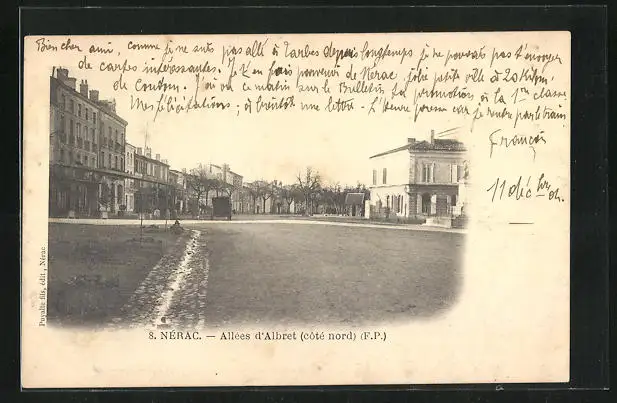 Bien cher ami, comme je ne suis pas allé à Tarbes depuis longtemps je ne pouvais pas t'envoyer
de cartes intéressantes. Je t'en fais parvenir de Nérac, jolie petite ville à 20 Kilm.
de Condom. J'ai vu ce matin sur le Bulletin ta promotion à la 1re classe
Mes félicitations, à bientôt une lettre - L'heure presse car je rentre par le train
François
11 déc
8. NÉRAC. — Allées d'Albret (côté nord) (F.P.)
Puyalte fils, édit, Nérac